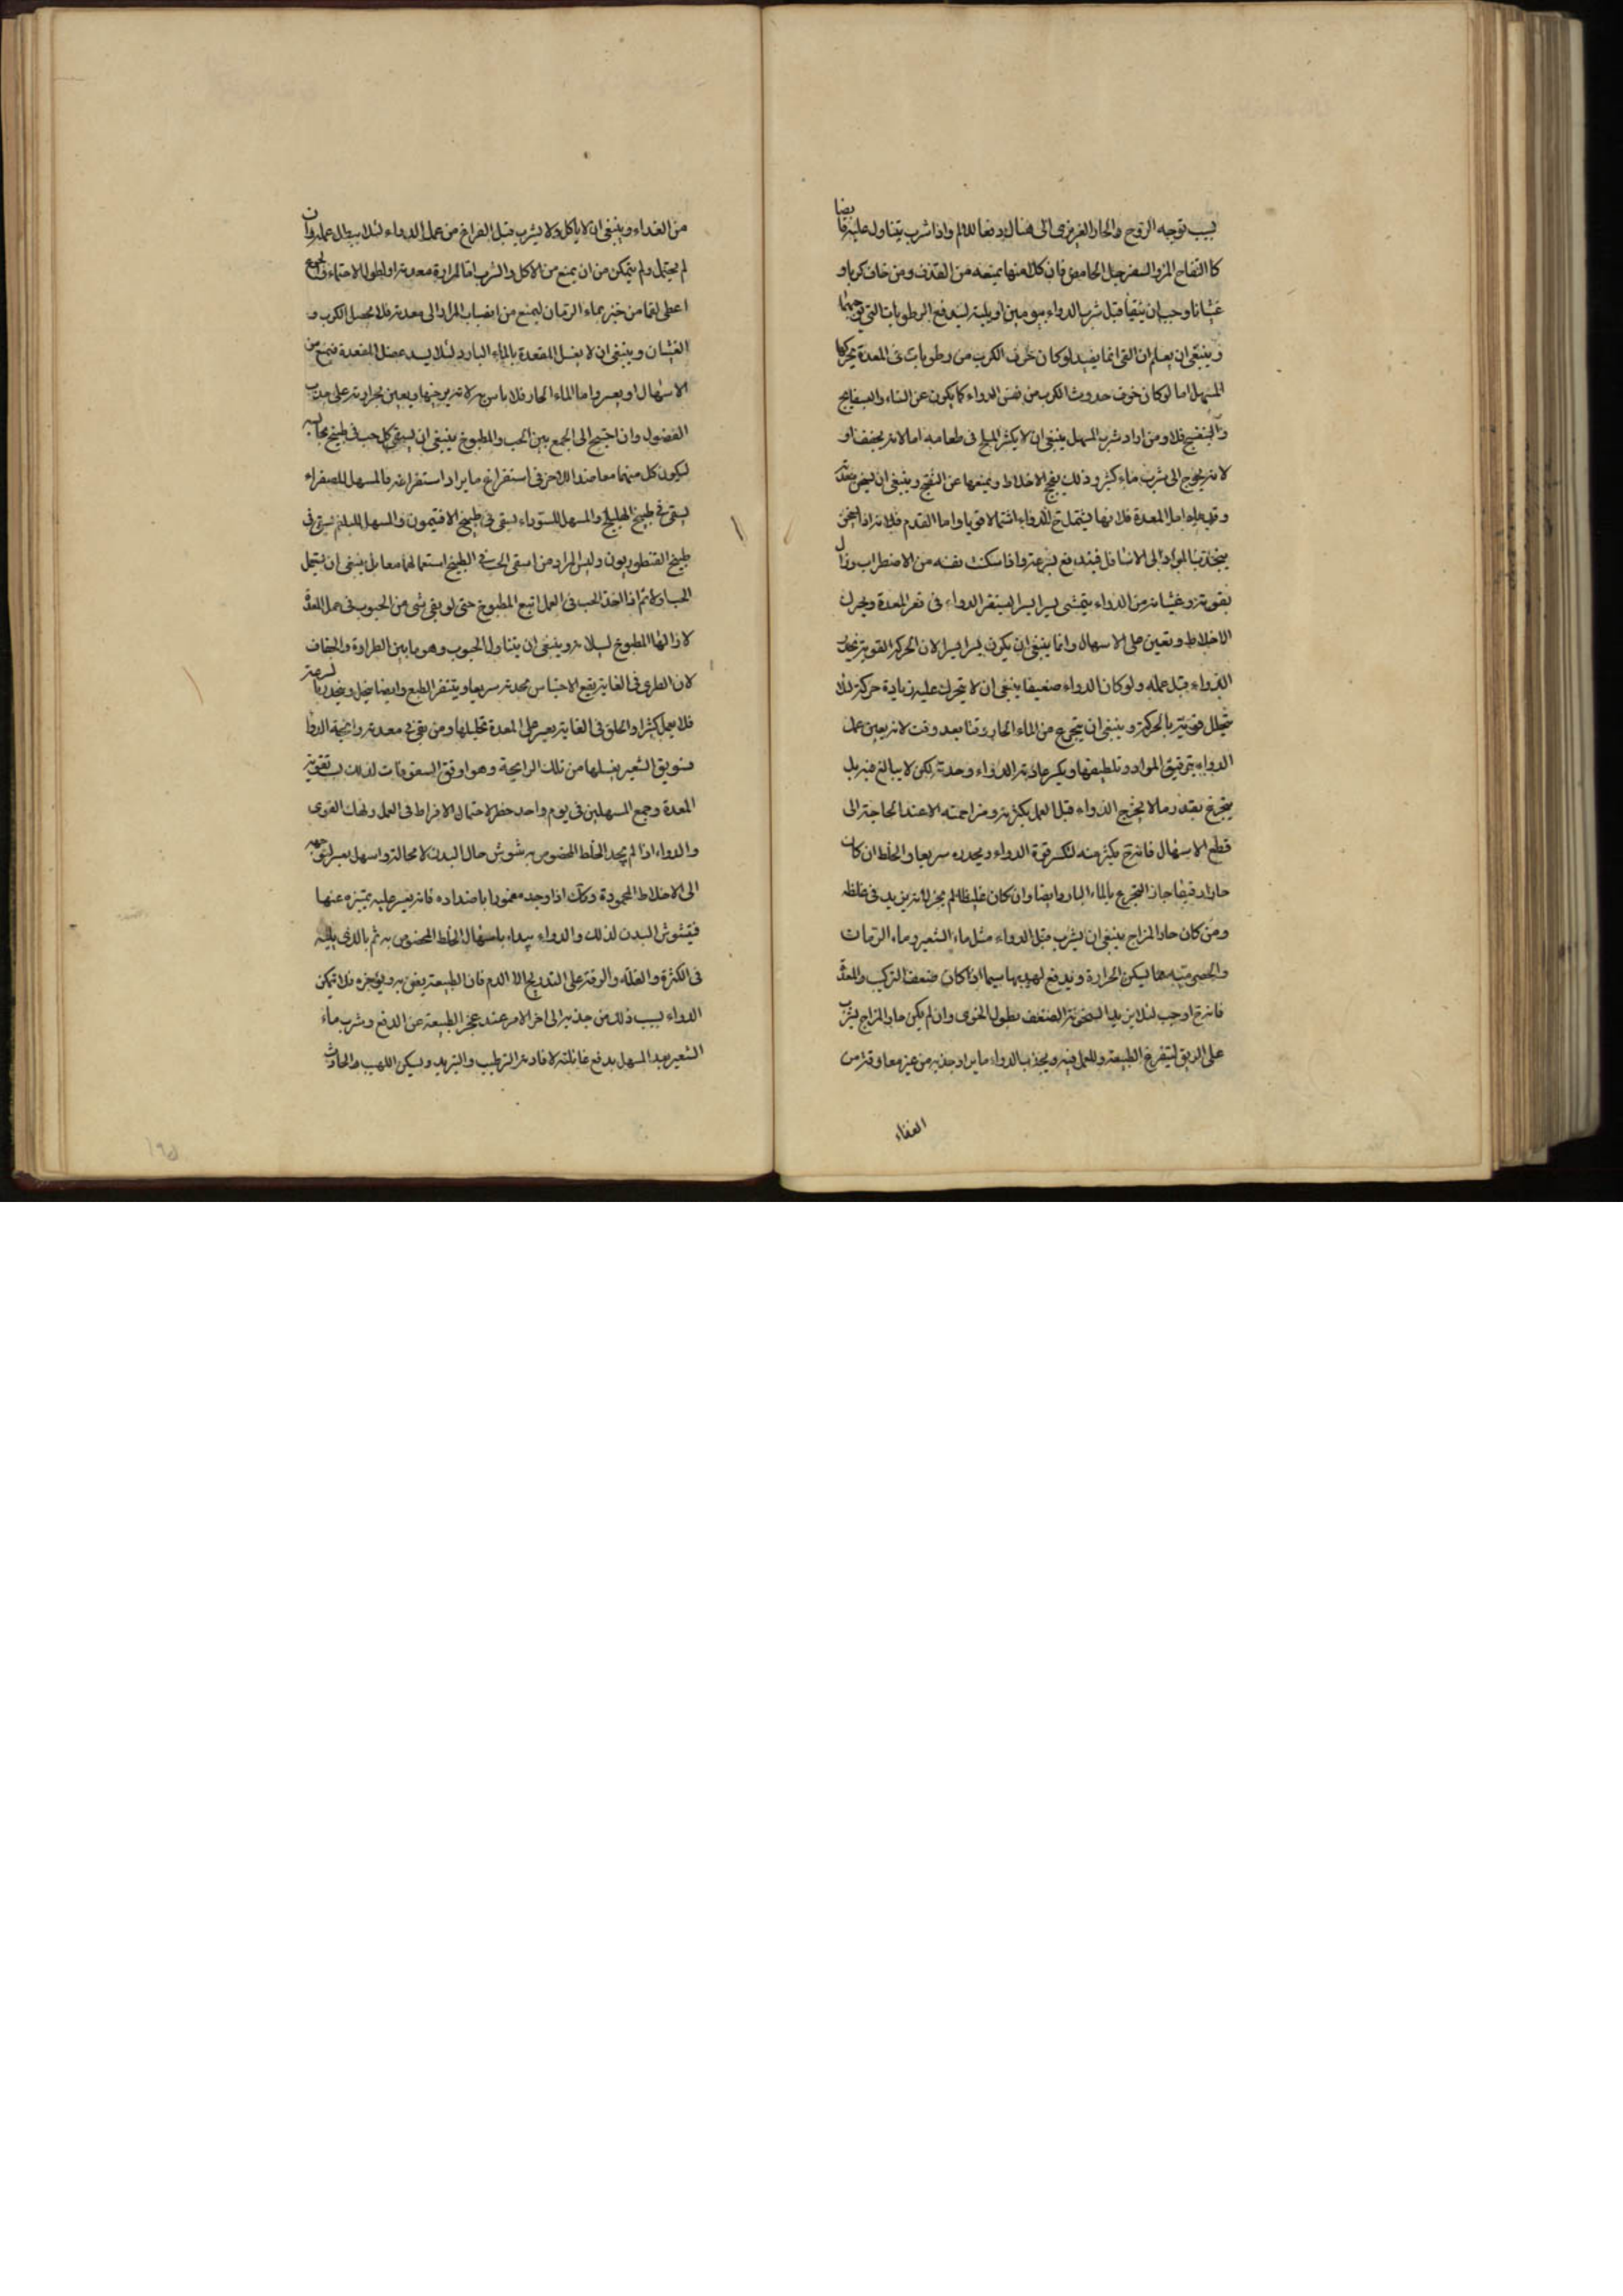 بسبب توجه الروح والحار الغريزى الى هناك دفعا للالم واذا شرب يتناول عليه قابضا
كالتفاح المز والسفرجل الحامض فان كلا منها يمنعه من القذف ومن خاف كربا و
غثيانا وجب ان يتقيأ قبل شرب الدواء بيومين او يليه ليندفع الرطوبات التى
وينبغى ان يعلم ان القئ انما يفيد لو كان خوف الكرب من رطوبات فى المعدة يحركها
المسهل اما لو كان خوف حدوث الكرب من نفس الدواء كما يكون عن السناء والبسفايج
والبنفسج فلا ومن اراد شرب المسهل ينبغى ان لا يكثر الملح فى طعامه اما لانه يجفف او
لانه يحوج الى شرب ماء كثير وذلك يفجج الاخلاط ويمنعها عن النضج وينبغى ان يسخن معدته
وقدميه اما المعدة فلانها يشتمل ح للدواء اشتمالا قويا واما القدم فلانه اذا سخن
ينجذب المواد الى الاسافل فيندفع بسرعة واذا سكنت نفسه من الاضطراب وزال
بقوته وغثيانه من الدواء يتمشى يسيرا يسيرا ليستقر الدواء فى قعر المعدة ويحرك
الاخلاط ويعين على الاسهال وانما ينبغى ان يكون يسيرا يسيرا لان الحركة القوية يحدر
الدواء قبل عمله ولو كان الدواء ضعيفا ينبغى ان لا يتحرك عليه زيادة حركة لئلا
يتحلل قوته بالحركة وينبغى ان يتجرع من الماء الحار وقتا بعد وقت لانه يعين عمل
الدواء بترقيق المواد وتلطيفها ويكسر عادية الدواء وحدته لكن لا يبالغ فيه بل
يتجرع بقدر ما لا يخرج الدواء قبل العمل بكثرته ومزاحمته الا عند الحاجة الى
قطع الاسهال فانه ح يكثر منه لتكسر قوة الدواء ويحدره سريعا والخلط ان كان
حارا رقيقا جاز التجرع بالماء البارد ايضا وان كان غليظا لم يجز لانه يزيد فى غلظه
ومن كان حار المزاج ينبغى ان يشرب قبل الدواء مثل ماء الشعير وماء الرمان
والحصرمية مما يسكن الحرارة ويدفع لهيبها سيما اذا كان ضعف التركيب والمعدة
فانه ح اوجب لئلا يزيد السخونة الضعف بطول الخوى وان لم يكن حار المزاج يشرب
على الريق ليتفرغ الطبيعة وللعمل فيه ويجذب بالدواء ما يراد جذبه من غير معاوقة من
الغذاء
من الغذاء وينبغى ان لا ياكل ولا يشرب قبل الفراغ من عمل الدواء لئلا يبطل عمله وان
لم يحتمل ولم يتمكن من ان يمنع من الاكل والشرب اما لمرارة معدته او لطول الاحتماء والجوع
اعطى لقما من خبز بماء الرمان ليمنع من انصباب المرار الى معدته فلا يحصل الكرب و
الغثيان وينبغى ان لا يغسل المقعدة بالماء البارد لئلا يسد عضل المقعدة فيمنع من
الاسهال او يعسر واما الماء الحار فلا باس به لانه يرخيها ويعين بحرارته على جذب
الفضول وان احتيج الى الجمع بين الحب والمطبوخ ينبغى ان يسقى كل حب فى طبيخ يجانسه
ليكون كل منهما معاضدا للاخر فى استفراغ ما يراد استفراغه فالمسهل للصفراء
يسقى فى طبيخ الهليلج والمسهل للسوداء يسقى فى طبيخ الافتيمون والمسهل للبلغم يسقى فى
طبيخ القنطوريون وليس المراد من اسقى الحب فى الطبيخ استعمالهما معا بل ينبغى ان يستعمل
الحب اولا ثم اذا اخذ الحب فى العمل اتبع المطبوخ حتى لو بقى شى من الحبوب فى خمل المعدة
لازالها المطبوخ لسيلانه وينبغى ان يتناول الحبوب وهو ما بين الطراوة والجفاف
لان الطرى فى الغاية يقع الاحتباس بحدته سريعا ويتنفر الطبع وايضا ينحل وينحدر لسرعته
فلا يعمل كثيرا والجاف فى الغاية يعسر على المعدة تحليلها ومن بقى فى معدته رائحة الدواء
فسويق الشعير يغسلها من تلك الرايحة وهو اوفق السفوفات لذلك بسبب تقوية
المعدة وجمع المسهلين فى يوم واحد خطر لاحتمال الافراط فى العمل ونهك القوى
والدواء اذا لم يجد الخلط المخصوص به شوش حال البدن لا محالة واسهل بعسر لتوجهه
الى الاخلاط المحمودة وكذلك اذا وجد مغمورا باضداده فانه يعسر عليه تمييزه عنها
فيشوش البدن لذلك والدواء يبداء باسهال الخلط المخصوص به ثم بالذى يليه
فى الكثرة والقلة والرقة على التدريج الا الدم فان الطبيعة يضن به ويؤخره فلا تمكن
الدواء بسبب ذلك من جذبه الى اخر الامر عند عجز الطبيعة عن الدفع وشرب ماء
الشعير بعد المسهل يدفع غائلته لافادته الترطيب والتبريد وتسكين اللهيب والحادث